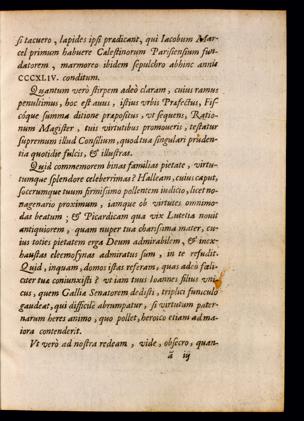 si tacuero, lapides ipsi prædicant, qui Iacobum Mar-
cel primum habuere Calestinorum Parisiensium fun-
datorem, marmoreo ibidem sepulchro abhinc annis
CCCXLIV. conditum.
Quantum verò stirpem adeò claram, cuius ramus
penultimus, hoc est auus, istius vrbis Præfectus, Fis-
cóque summa ditione præpositus, vt sequens, Ratio-
num Magister, tuis virtutibus promoueris, testatur
supremum illud Consilium, quod tua singulari pruden-
tia quotidie fulcis, & illustras.
Quid commemorem binas familias pietate, virtu-
tumque splendore celeberrimas? Halleam, cuius caput,
socerumque tuum firmissimo pollentem iudicio, licet no-
nagenario proximum, iamque ob virtutes omnimo-
das beatum; & Picardicam qua vix Lutetia nouit
antiquiorem, quam nuper tua charissima mater, cu-
ius toties pietatem erga Deum admirabilem, & inex-
haustas eleemosynas admiratus sum, in te refudit.
Quid, inquam, domos istas referam, quas adeò fæli-
citer tua coniunxisti? vt iam tuus Ioannes filius vni-
cus, quem Gallia Senatorem dedisti, triplici funiculo
gaudeat, qui difficilè abrumpatur, si virtutum pater-
narum heres animo, quo pollet, heroico etiam ad ma-
iora contenderit.
Vt verò ad nostra redeam, vide, obsecro, quan-
ã iij